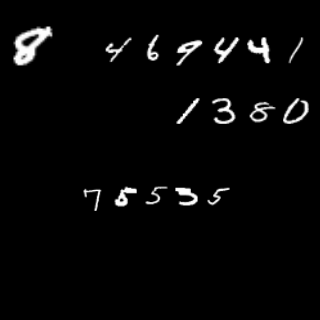 8 469441
1380
75535